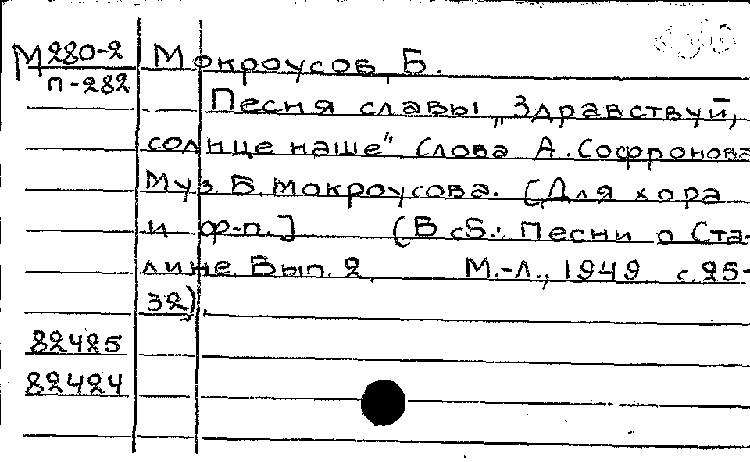 М 280-2 Мокроусов, Б.
П-282
Песня славы „Здравствуй,
солнце наше" Слова А. Софронова
Муз. Б. Мокроусова. [Для хора
и ф-п.] (В сб.: Песни о Ста-
лине Вып. 2. М.-Л., 1949 с. 25-
32).
82425
82424